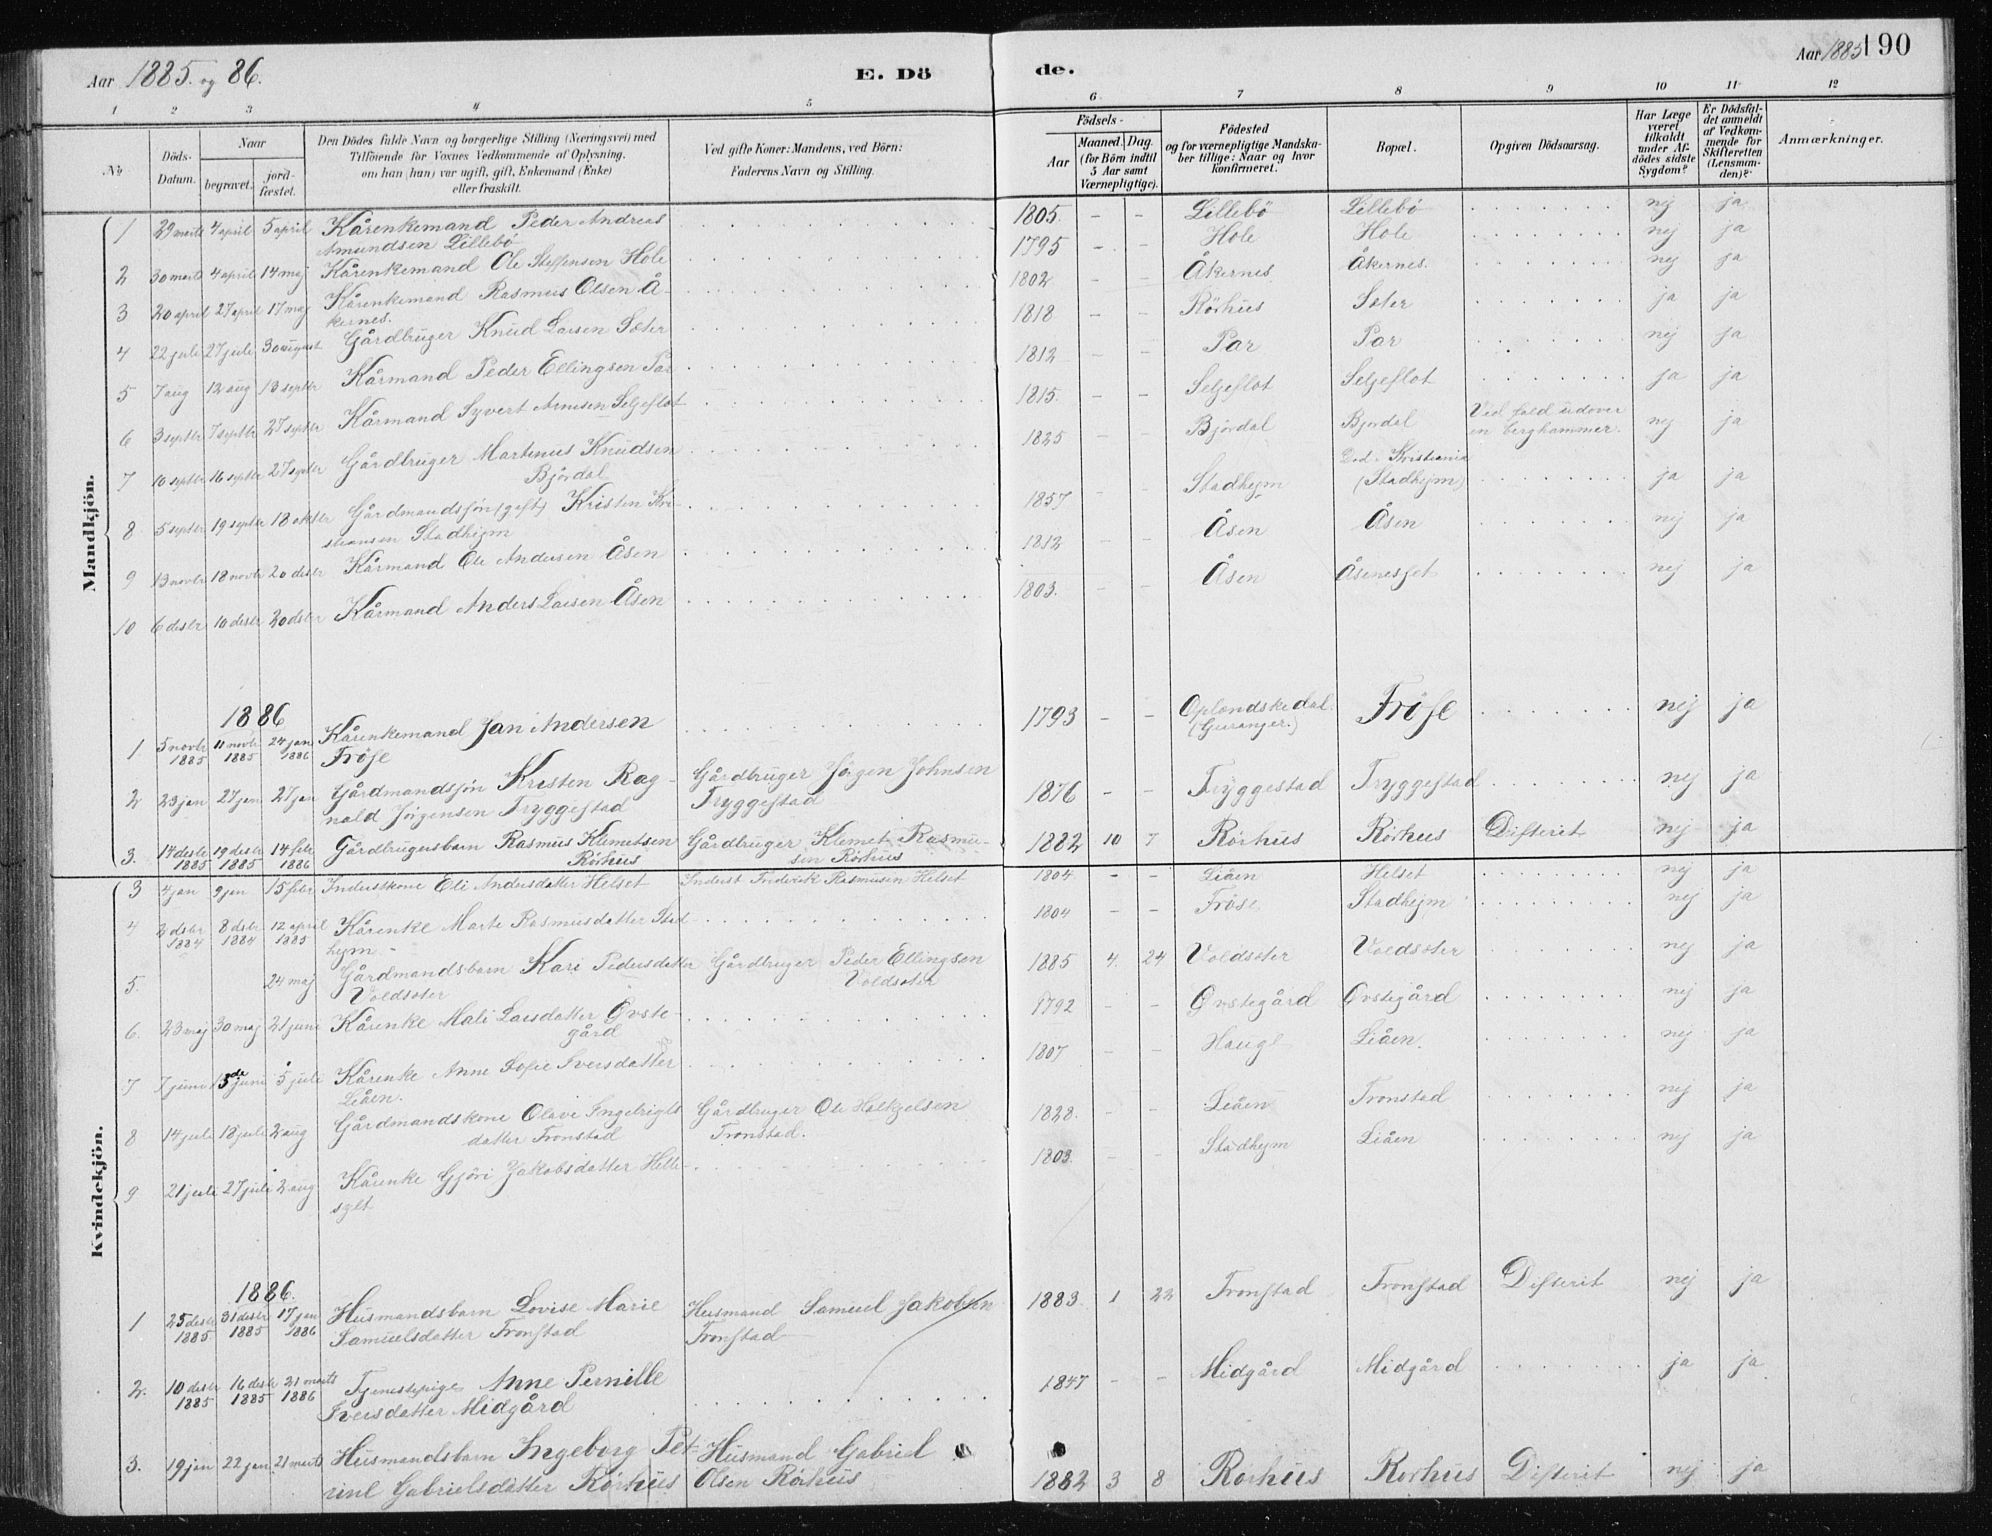 Aar 1885. og 86.
E. Dö
de.
Aar 1885
190
1 2 3 4 5 6 7 8 9 10 11 12
No
Döds-Datum.
Naar
begravet.
jord-fæstet.
Den Dödes fulde Navn og borgerlige Stilling (Næringsvei) med
Tilföiende for Voxnes Vedkommende af Oplysning,
om han (hun) var ugift, gift, Enkemand (Enke)
eller fraskilt.
Ved gifte Koner: Mandens, ved Börn:
Faderens Navn og Stilling.
Födsels-
Aar
Maaned. Dag.
(for Börn indtil
5 Aar samt
Værnepligtige).
Födested
og for værnepligtige Mandska-
ber tillige: Naar og hvor
konfirmeret.
Bopæl.
Opgiven Dödsaarsag.
Har Læge
været
tilkaldt
under Af-
dödes sidste
Sygdom?
Er Dödsfal-
det anmeldt
af Vedkom-
mende for
Skifteretten
(Lensman-
den)?
Anmærkninger.
Mandkjön.
1 29 marts 4 april 5 april Kårenkemand Peder Andreas 1805. - - Lillebö Lillebö nej ja
Amundsen Lillebö
2 30 marts 4 april 14 maj Kårenkemand Ole Steffensen Hole 1795 - - Hole Hole nej ja
3 20 april 27 april 17 maj Kårenkemand Rasmus Olsen Å- 1802 - - Åkernes Åkernes. nej ja
kernes.
4 22 juli 27 juli 30 august Gårdbruger Knud Larsen Sæter 1818 - - Rörhus Sæter ja ja
5 7 aug 12 aug 13 septbr Kårmand Peder Ellingsen Par 1812 - - Par Par nej ja
6 3 septbr 7 septbr 27 septbr Kårmand Syvert Arnesen Seljeflot 1815. - - Seljeflot Seljeflot ja ja
7 10 septbr 16 septbr 27 septbr Gårdbruger Martinus Knudsen 1825 - - Björdal Björdal Ved fald udover nej ja
Björdal en berghammer.
8 5 septbr 19 septbr 18 oktbr Gårdmandssön (gift) Kristen Kri- 1857 - - Stadhejm Död i Kristiania ja ja
stiansen Stadhejm (Stadhejm)
9 13 novbr 18 novbr 20 desbr Kårmand Ole Andersen Åsen 1812 - - Åsen Åsen nej ja
10 6 desbr 10 desbr 20 desbr Kårmand Anders Larsen Åsen 1803. - - Åsen Åsenesset nej ja
1886
1 5 novbr 11 novbr 24 jan Kårenkemand Jan Andersen 1793 - - Oplændskedal. Fröse nej ja
1885 1885 1886 Fröse (Geiranger.)
2 23 jan 27 jan 27 jan Gårdmandssön Kristen Rag- Gårdbruger Jörgen Johnsen 1876 - - Tryggestad Tryggestad nej ja
nald Jörgensen Tryggestad Tryggestad
3. 14 desbr 19 desbr 14 febr Gårdbrugersbarn Rasmus Klemetsen Gårdbruger Klemet Rasmu- 1882 10 7 Rörhus Rörhus Difterit nej ja
1885 1885 1886 Rörhus sen Rörhus
Kvindekjön.
3 4 jan 9 jan 15 febr Inderstkone Eli Andersdatter Helset Inderst Frederik Rasmusen Helset 1804 - - Liåen Helset nej ja
4 2 dsbr 8 dsbr 12 april Kårenke Marte Rasmusdatter Stad- 1804 - - Fröse Stadhejm nej ja
1884 1884 1885 hejm
5. 24 maj Gårdmandsbarn Kari Pedersdatter Gårdbruger Peder Ellingsen 1885 4. 24 Voldsæter Voldsæter nej ja
Voldsæter Voldsæter
6. 23 maj 30 maj 21 juni Kårenke Mali Larsdatter Øvste- 1792 - - Øvstegård Øvstegård nej ja
gård
7 7 juni 13de juni 5 juli Kårenke Anne Sofie Iversdatter 1807 - - Hauge Liåen. nej ja
Liåen.
8 14 juli 18 juli 2 aug Gårdmandskone Olave Ingebrigts- Gårdbruger Ole Holkjelsen 1828. - - Liåen Tronstad nej ja
datter Tronstad Tronstad.
9 21 juli 27 juli 2 aug Kårenke Gjöri Jakobsdatter Helle- 1803. - - Stadhejm Liåen nej ja
sylt
1886.
1 25 desbr 31 desbr 17 jan Husmandsbarn Lovise Marie Husmand Samuel Jakobsen 1883. 1 22 Tronstad Tronstad Difterit nej ja
1885 1885 1886 Samuelsdatter Tronstad Tronstad
2. 10 desbr 16 desbr 21 marts Tjenestepige Anne Pernille 1847 - - Midgård Midgård ja ja
1885 1885 1886 Iversdatter Midgård
3. 19 jan 22 jan 21 marts Husmandsbarn Ingeborg Pet- Husmand Gabriel 1882 3 8 Rörhus Rörhus Difterit nej ja
rine Gabrielsdatter Rörhus Olsen Rörhus